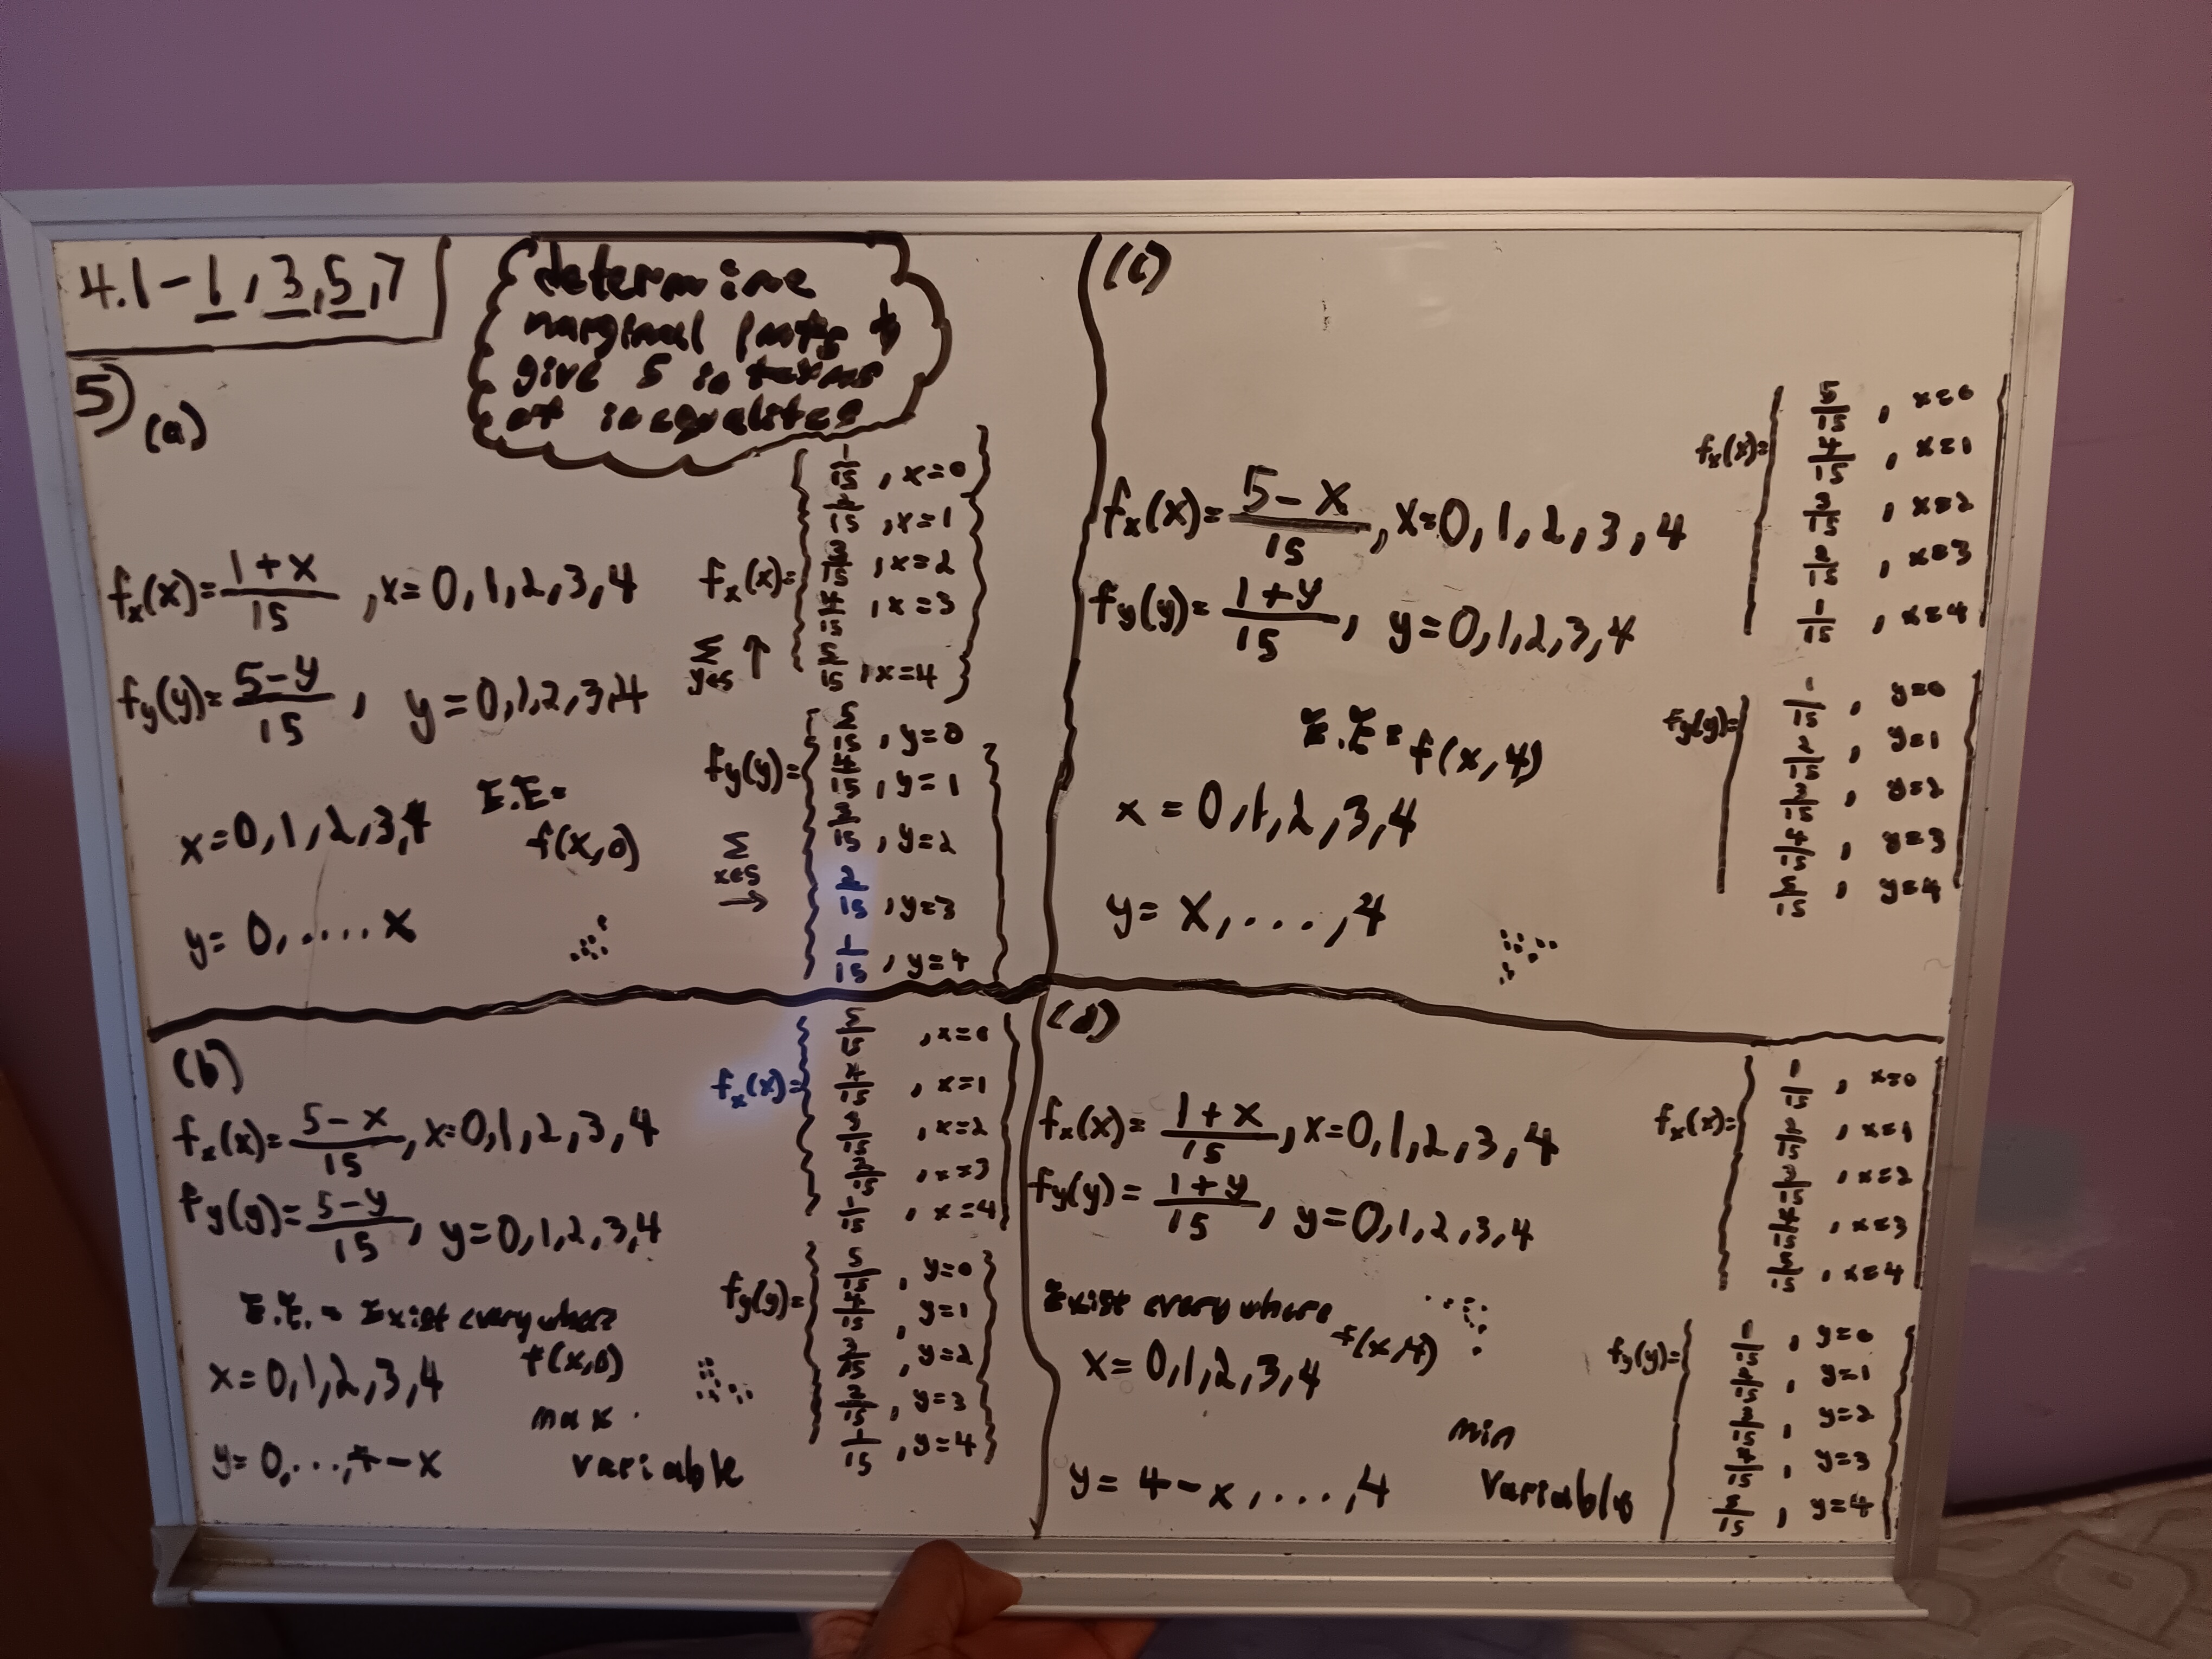 4.1-1,3,5,7
determine
marginal pmfs +
give S in terms
of inequalites
5)
(a)
fx(x)= 1+x/15 ,x=0,1,2,3,4
fy(y)= 5-y/15 , y=0,1,2,3,4
x=0,1,2,3,4
E.E=
f(x,0)
y=0,....x
fx(x)=
1/15 ,x=0
2/15 ,x=1
3/15 ,x=2
4/15 ,x=3
5/15 ,x=4
Σ y∈S ↑
fy(y)=
5/15 ,y=0
4/15 ,y=1
3/15 ,y=2
2/15 ,y=3
1/15 ,y=4
Σ x∈S →
(b)
fx(x)= 5-x/15 ,x=0,1,2,3,4
fy(y)= 5-y/15 , y=0,1,2,3,4
E.E.= Exist everywhere
f(x,0)
x=0,1,2,3,4
max
y=0,...,4-x
variable
fx(x)=
5/15 ,x=0
4/15 ,x=1
3/15 ,x=2
2/15 ,x=3
1/15 ,x=4
fy(y)=
5/15 ,y=0
4/15 ,y=1
3/15 ,y=2
2/15 ,y=3
1/15 ,y=4
(c)
fx(x)= 5-x/15 ,x=0,1,2,3,4
fy(y)= 1+y/15 , y=0,1,2,3,4
E.E= f(x,4)
x=0,1,2,3,4
y=x,...,4
fx(x)=
5/15 , x=0
4/15 , x=1
3/15 , x=2
2/15 , x=3
1/15 , x=4
fy(y)=
1/15 , y=0
2/15 , y=1
3/15 , y=2
4/15 , y=3
5/15 , y=4
(d)
fx(x)= 1+x/15 ,x=0,1,2,3,4
fy(y)= 1+y/15 , y=0,1,2,3,4
Exist everywhere
f(x,4)
x=0,1,2,3,4
min
y=4-x,...,4
variable
fx(x)=
1/15 , x=0
2/15 , x=1
3/15 , x=2
4/15 , x=3
5/15 , x=4
fy(y)=
1/15 , y=0
2/15 , y=1
3/15 , y=2
4/15 , y=3
5/15 , y=4